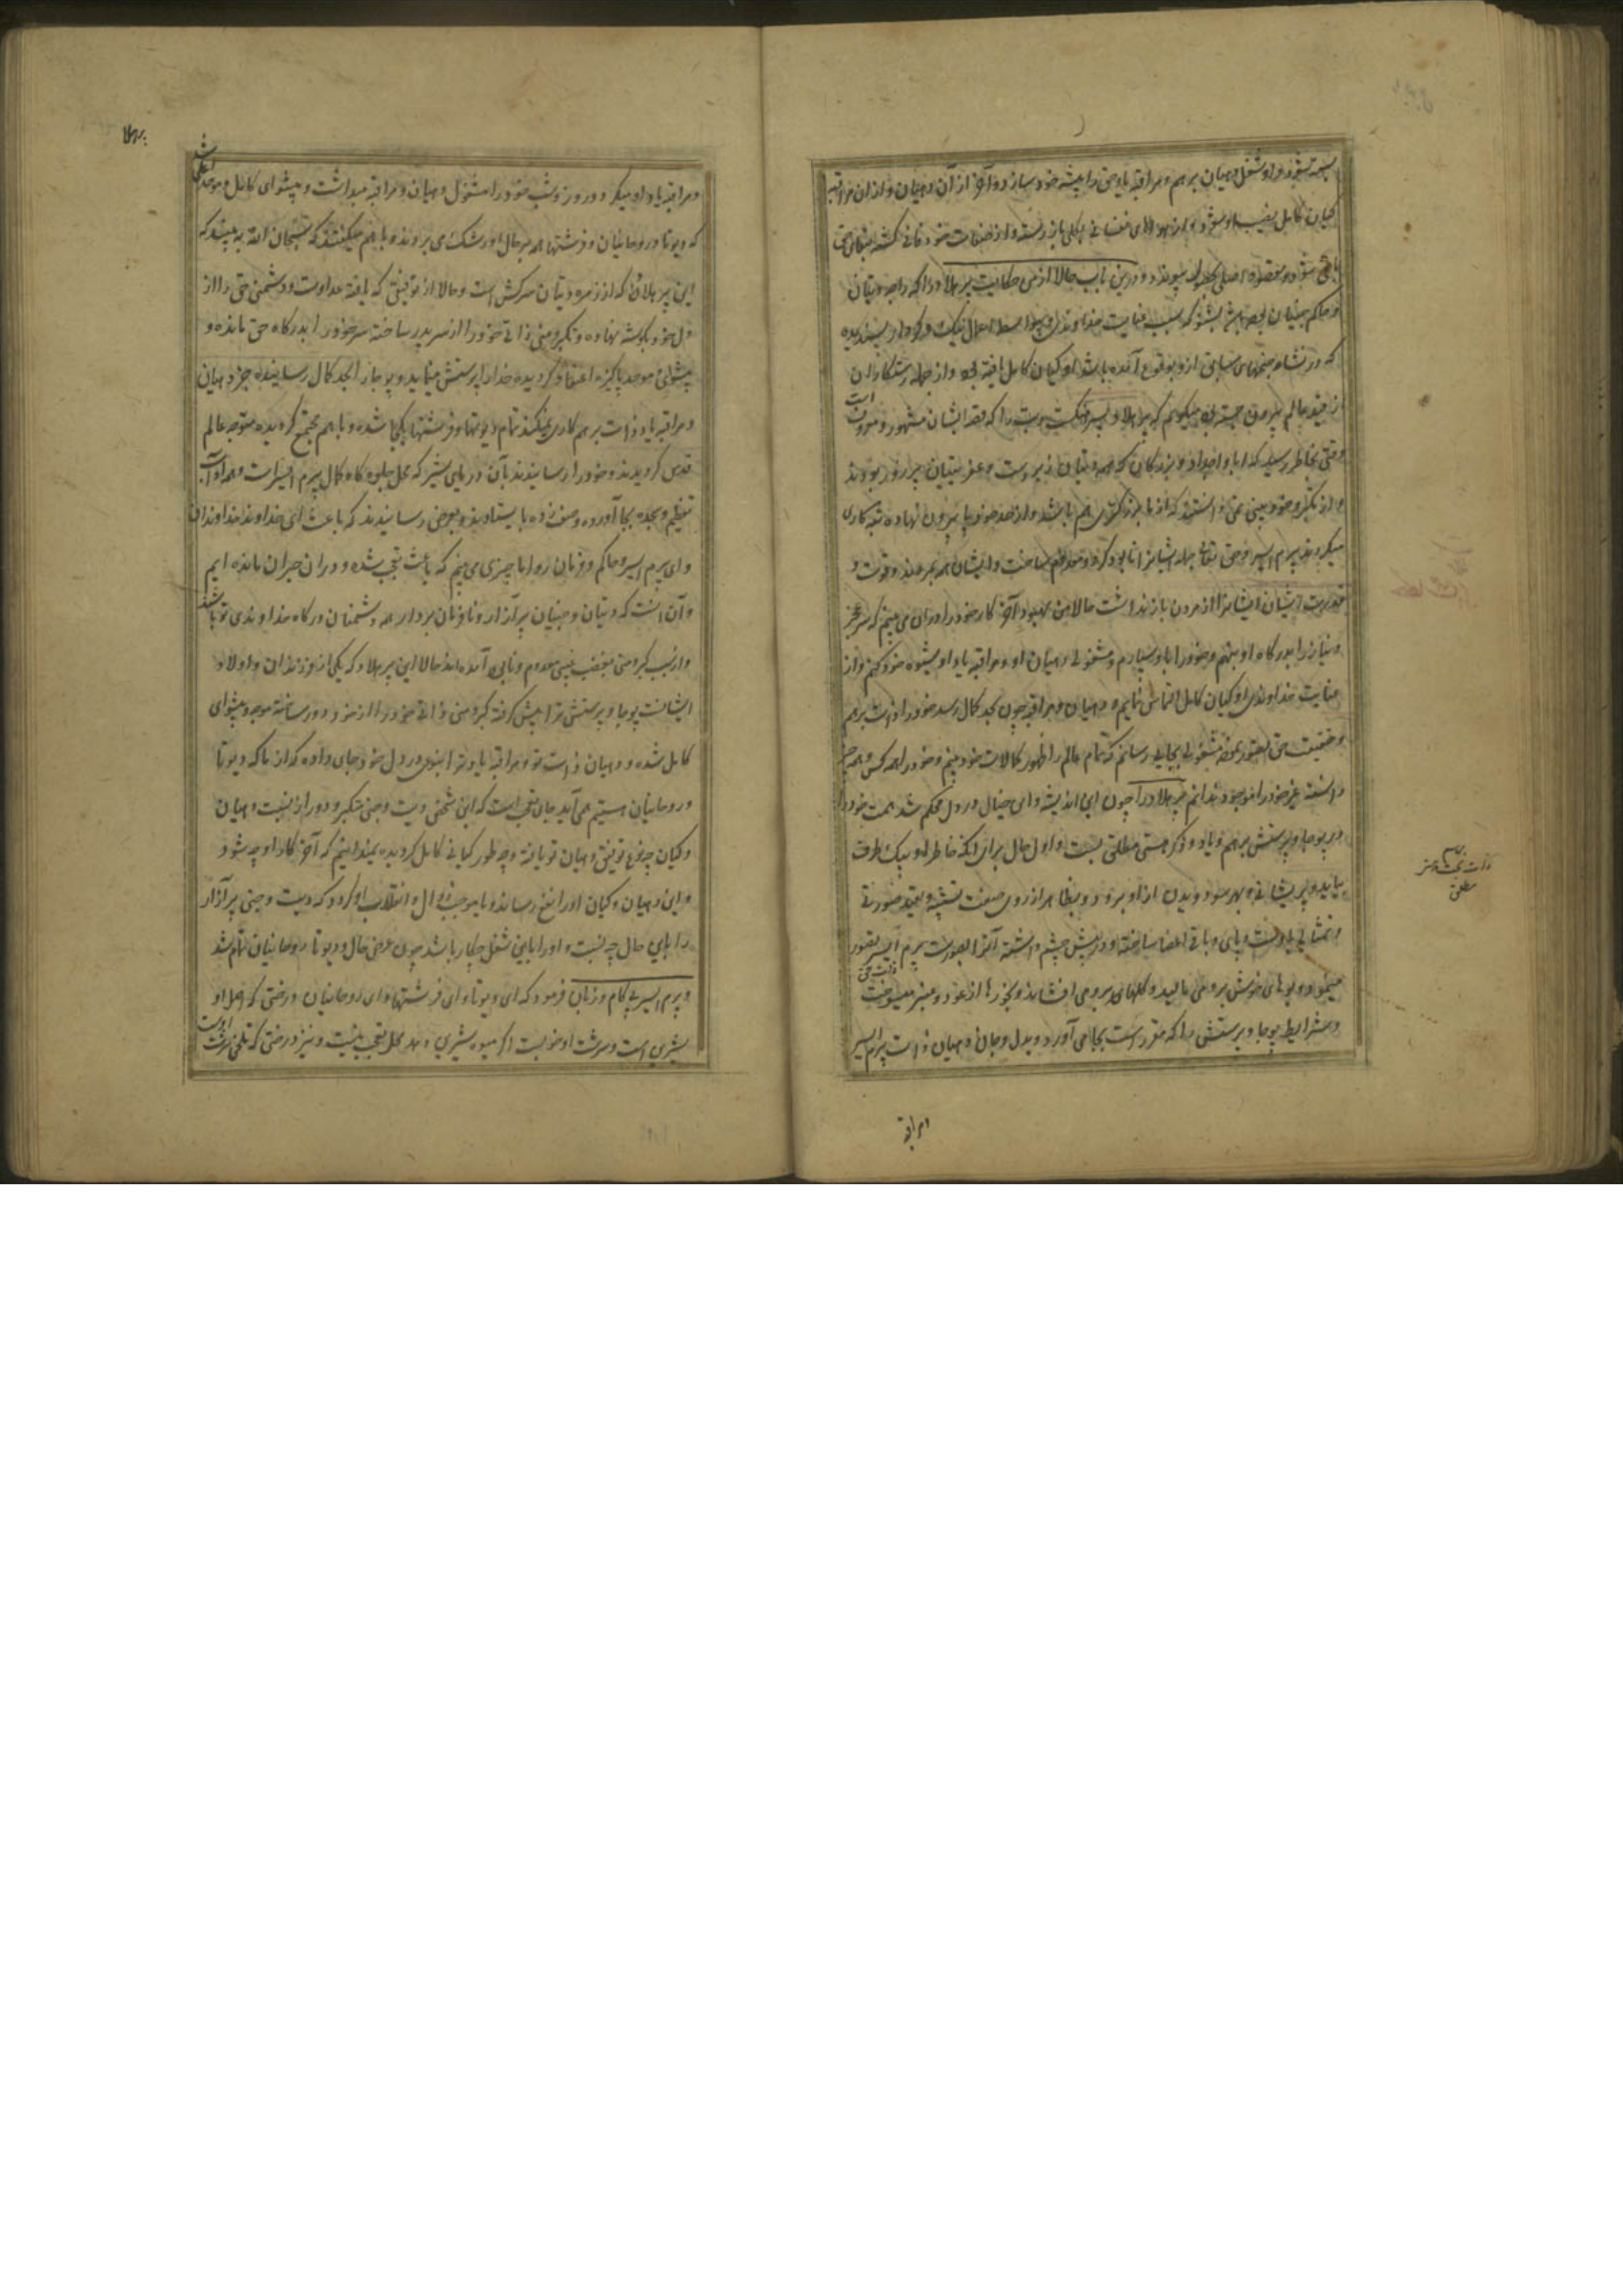 بسته شود و او شغل دهیان برهم و مراقبه یاد حق را پیشه خود سازد و آخر از آن دهیان و از ان مراقبه
گیان کامل نصیب او شود و از هواهای نفسانی بکلی باز رسته و از صفات خود فانی گشته ببقای حق
باقی شود و مقصود اصلی بحصول پیوندد و درین باب حالا از من حکایت پرهلاد را که راجه دیتان
و حاکم جنیان بود بشنو که بسبب عنایت خداوندی و بواسطه اعمال نیک و کردار پسندیده
که در نشاه جنمهای سابق ازو بوقوع آمده باشد او گیان کامل یافته بود و از جمله رستگاران
از قید عالم بیرون جسته بود میگویم که پرهلاد پسر هرنکشپ بود را که قصه ایشان مشهور و معروف است
وقتی بخاطر رسید که ابا و اجداد و بزرگان که همه دیتان زبردست و عفریتیان پر زور بودند
و از تکبر و خودبینی نمی دانستند که از ما بزرگتری هم باشد و از حد خود پا بیرون نهاده تبه کاری
میکردند پرم ایسر و حق تعالی جمله ایشانرا نابود کرد و معدوم ساخت و ایشان همه هنرمند و قوت و
قدرت ایشان ایشانرا از مردن باز نداشت حالا من بهبود آخر کار خود را در ان می بینم که سر عجز
و نیاز را بدرگاه او بنهم و خود را باو سپارم و مشغولی دهیان او و مراقبه یاد او شیوه خود کنم و از
عنایت خداوندی او گیان کامل التماس نمایم و دهیان و مراقبه چون بحد کمال رسد خود را ذات برهم
و حقیقت حق تصور نموده مشغولی بجایی رسانم که تمام عالم را ظهور کمالات خود بینم و خود را همه کس و همه چیز
دانسته غیر خود را موجود ندانم پرهلاد را چون این اندیشه و این خیال در دل محکم شد همت خود را
در پوجا و پرستش برهم و یاد و ذکر هستی مطلق بست و اول حال برای آنکه خاطر او بیک طرف
بیاید و پریشانی و بهر سو دویدن از او برود و بظاهر از روی صفت تشبیه و بقید صورتی
و تمثالی با دست و پای و باقی اعضا ساخته و در پیش چشم داشته آنرا بصورت پرم ایسر تصور
ذات حق
مینمود و بوهای خوش برو می مالید و گلهای برو می افشاند و بخورها از عود و عنبر میسوخت
و شرایط پوجا و پرستش را که مقرر است بجا می آورد و بدل و جان دهیان ذات پرم ایسر
و مراقبه
برهم
ذات بحت و هستی
مطلق
پرهلا
و مراقبه یاد او میکرد و روز و شب خود را مشغول دهیان و مراقبه میداشت و پیشوای کامل و موحد اعلی شد
که دیوتا و روحانیان و فرشتها همه بر حال او رشک می بردند و باهم میگفتند که سبحان الله ببینید که
این پرهلاد که از زمره دیتان سرکش است و حالا از توفیقی که یافته عداوت و دشمنی حق را از
دل خود بگوشه نهاده و تکبر و منی ذاتی خود را از سر بدر ساخته سر خود را بدرگاه حق مانده و
پیشوای موحد پاکیزه اعتقاد گردیده خدا را پرستش مینماید و پوجا را بحد کمال رسانیده جز دهیان
و مراقبه یاد ذات برهم کاری نمیکند تمام دیوتها و فرشتها یکجا شده و باهم مجتمع گردیده متوجه عالم
قدس گردیدند و خود را رسانیدند بآن دریای شیر که محل جلوه گاه کمال پرم ایسر است و همه آداب
تعظیم و سجده بجا آورده و صف زده بایستادند و بعرض رسانیدند که باعث ای خداوند خداوندان
و ای پرم ایسر و حاکم و فرمان روا ما چیزی می بینیم که باعث تعجب شده و در ان حیران مانده ایم
و آن اینست که دیتان و جنیان پر آزار و نافرمان بردار همه دشمنان درگاه خداوندی تو باشند
و از سبب کبر و منی بغضب غیبی معدوم و نابود آمده اند حالا این پرهلاد که یکی از فرزندان و اولاد
ایشانست پوجا و پرستش ترا پیش گرفته کبر و منی ذاتی خود را از خود دور ساخته موحد و پیشوای
کامل شده و دهیان ذات تو و مراقبه یاد ترا بنوعی در دل خود جای داده که از ما که دیوتا
و روحانیان هستیم نمی آید جای تعجب است که این شخص دیت و جنی متکبر و دور از نسبت دهیان
و گیان چه نوع توفیق دهیان تو یافته و چه طور گیانی کامل گردیده نمیدانیم که آخر کار او چه شود
و این دهیان و گیان او را نفع رساند و یا موجب زوال و انقلاب او گردد که دیت و جنی پر آزار
را باین حال چه نسبت و او را باین شغل چکار باشد چون عرض حال دیوتا و روحانیان تمام شد
و پرم ایسر بی کام و زبان فرمود که ای دیوتا و ای فرشتها و ای روحانیان درختی که اصل او
شیرین است و سرشت او خوبست اگر میوه شیرین دهد محل تعجب نیست و نیز درختی که تلخی سرشت اوست